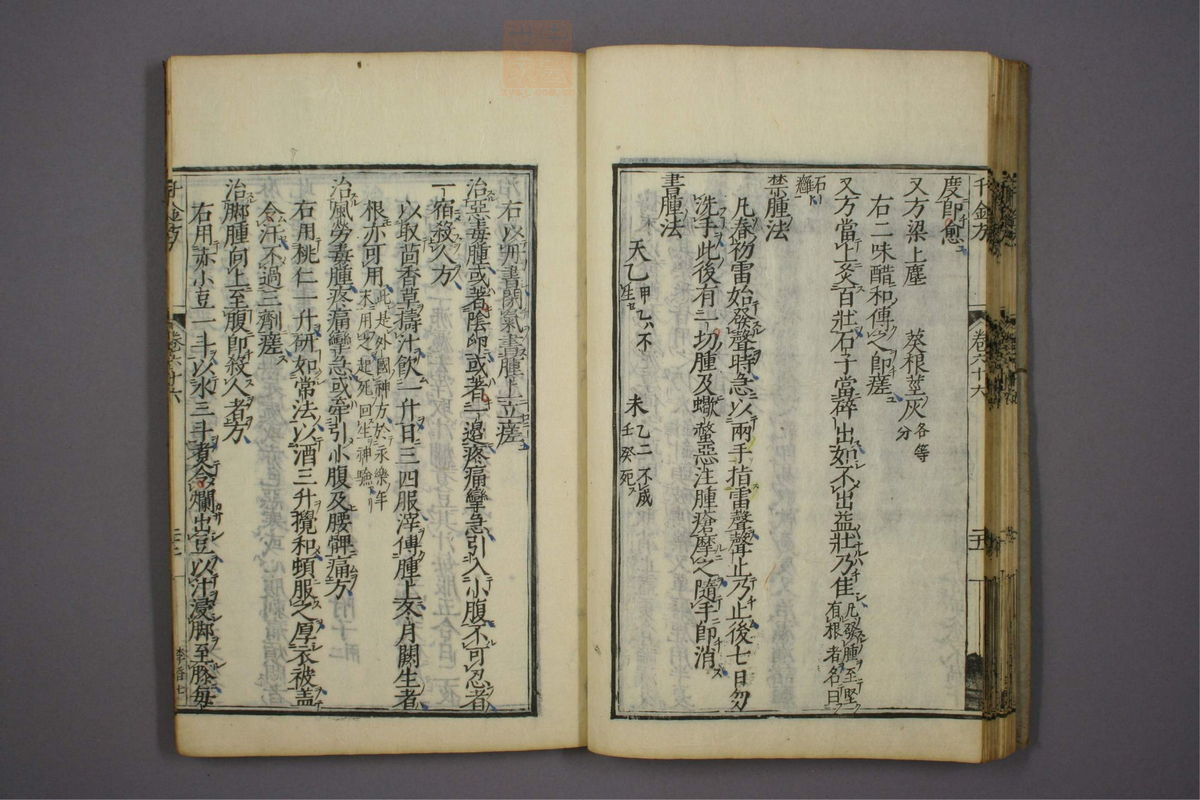 千金方 卷六十六 二十五
度即愈
又方梁上塵 葵根莖灰各等分
右二味醋和傅之即瘥
又方當上灸百壯石子當碎出如不出益壯乃佳凡發腫至堅有根者名曰
石癰
禁腫法
凡春初雷始發聲時急以兩手指雷聲聲止乃止後七日勿
洗手此後有一切腫及蠍螫惡注腫瘡摩之隨手即消
書腫法
天乙甲乙不生 未乙二不成壬癸死
右以丹書閉氣書腫上立瘥
治惡毒腫或著陰卵或著一邊疼痛攣急引入小腹不可忍者
一宿殺人方
以取茴香草擣汁飲一升日三四服滓傅腫上冬月闕生者
根亦可用此是外國神方於永樂年末用之起死回生神驗
治風勞毒腫疼痛攣急或牽引小腹及腰髀痛方
右用桃仁一升研如常法以酒三升攪和頓服之厚衣被蓋
令汗不過三劑瘥
治腳腫向上至腹即殺人者方
右用赤小豆一斗以水三斗煮令爛出豆以汁浸腳至膝每
千金方 卷六十六